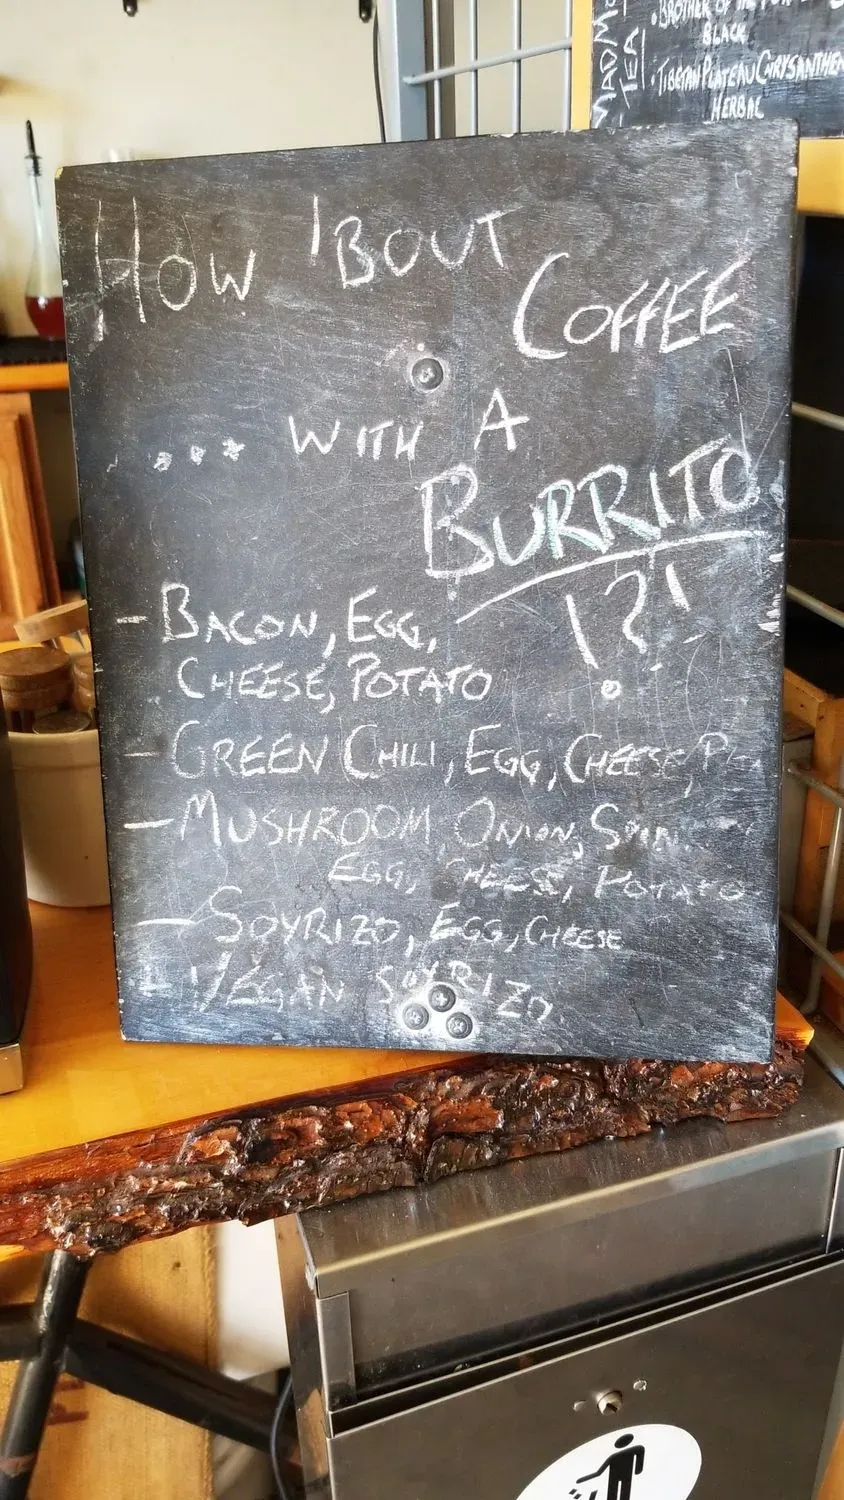 MAD M
TEA
• BROTHER OF THE
BLACK
• TIBETAN PLATEAU CHRYSANTHEM
HERBAL
HOW 'BOUT
COFFEE
.... WITH A
BURRITO
!?!
- BACON, EGG,
CHEESE, POTATO
- GREEN CHILI, EGG, CHEESE,
- MUSHROOM, ONION,
EGG, CHEESE, POTATO
- SOYRIZO, EGG, CHEESE
- VEGAN SOYRIZO